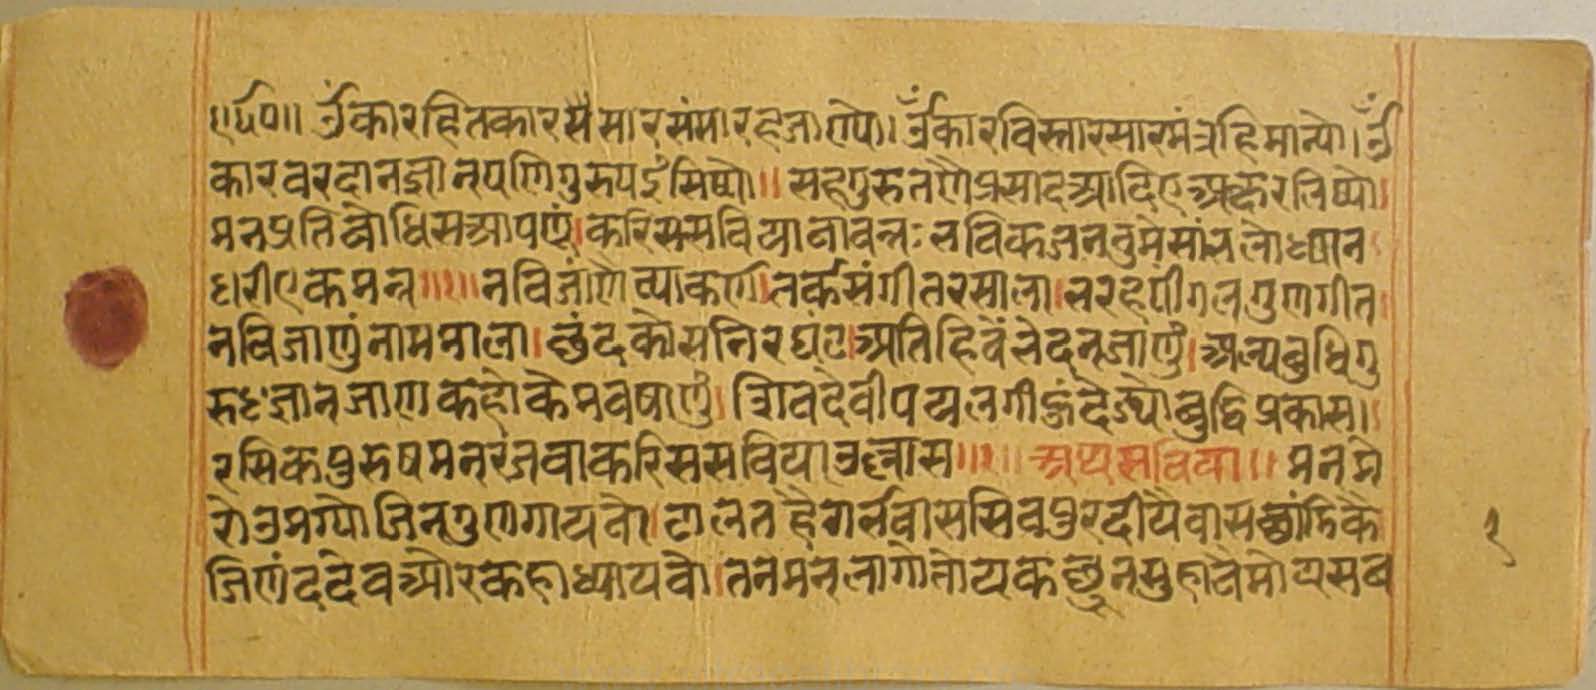 ॥र्द०॥ ॐकार हितकार सै सार संसारह जाण्यो। ॐकार विस्तार सार मंत्रहि मान्यो। ॐ
कार वरदान ज्ञान पणि गुरु पइं सिष्यो॥ सहगुरु तणै प्रसाद आदि ए अक्षर लिष्यो।
मन प्रतिबोधि स आपणुं। करिस सविया बावन्न: भविक जन तुमे सांभलो ध्यान
धरी एक मन्न॥१॥ नवि जांणुं व्याकर्ण। तर्क संगीत रसाला। भरह पींगल गुण गीत।
नवि जाणुं नाममाला। छंद कोस निरघंट। अति हिवें भेद न जाणुं। अल्प बुधि गु
रु ज्ञान जाण कहो केम वषाणुं। शिवदेवी पयलगी कुं देज्यो बुद्धि प्रकास।
रसिक पुरुष मन रंजवा करिस सविया उल्लास॥२॥ अथ सविया॥ मन मे
रो उमग्यो जिन गुण गायवो। टालत है गर्भवास सिवपुर दीयै वास छांडि कै
जिणंद देव और कहा ध्यायवो। तन मन लागो तोय कछू न सुहावै मोय सब
१